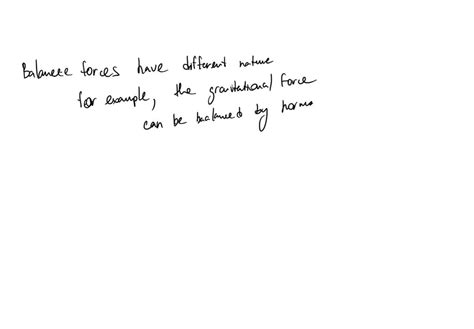 Balance forces have different nature
for example, the gravitational force
can be balanced by norma